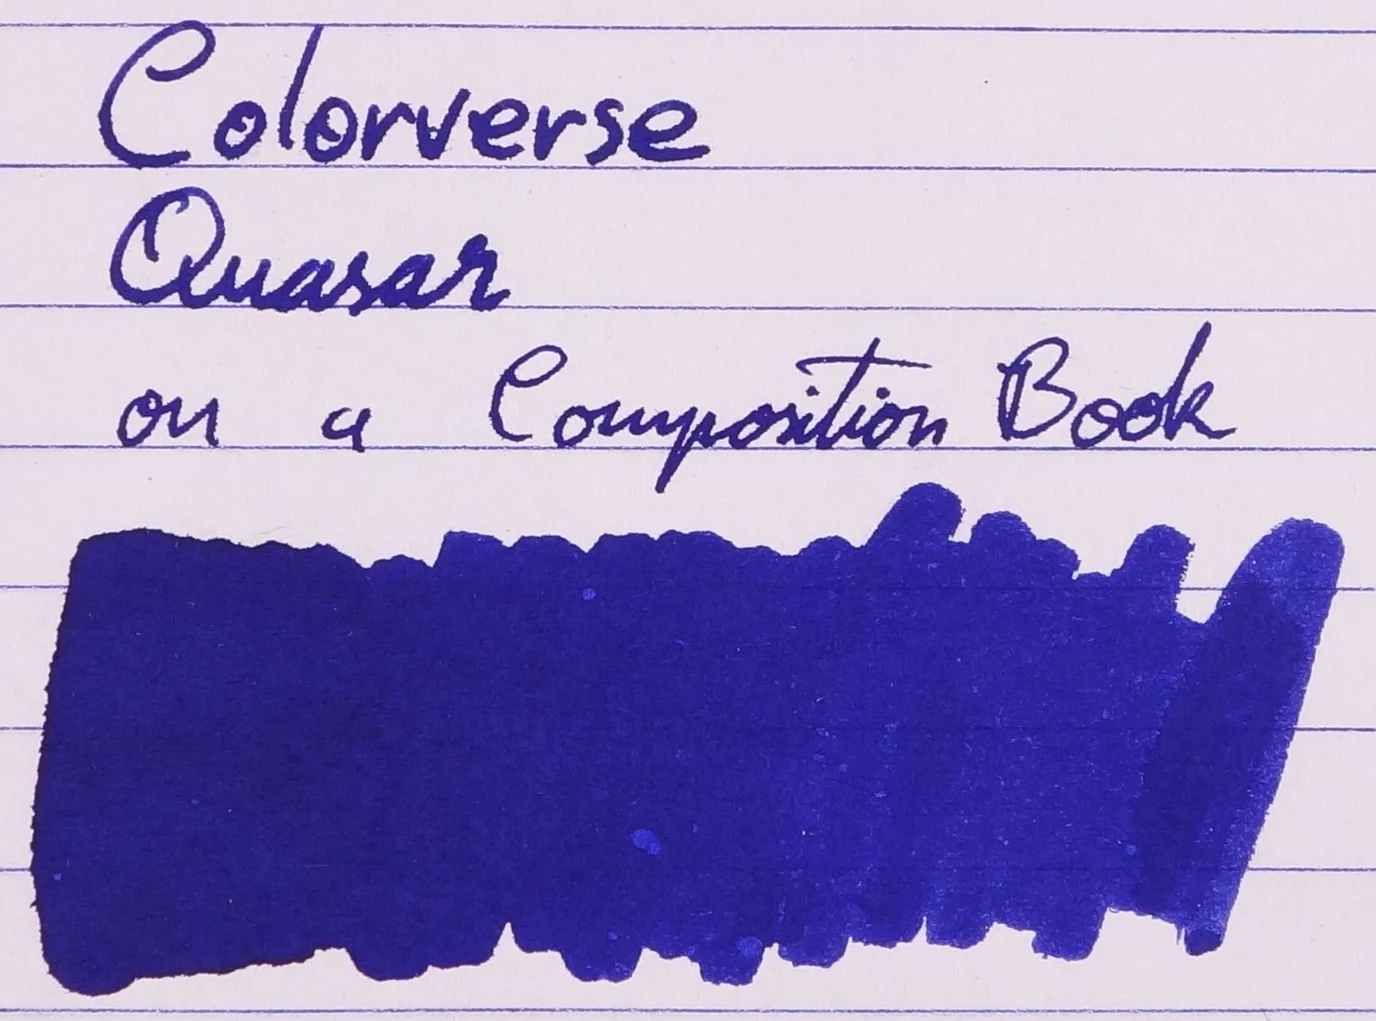 Colorverse
Quasar
on a Composition Book